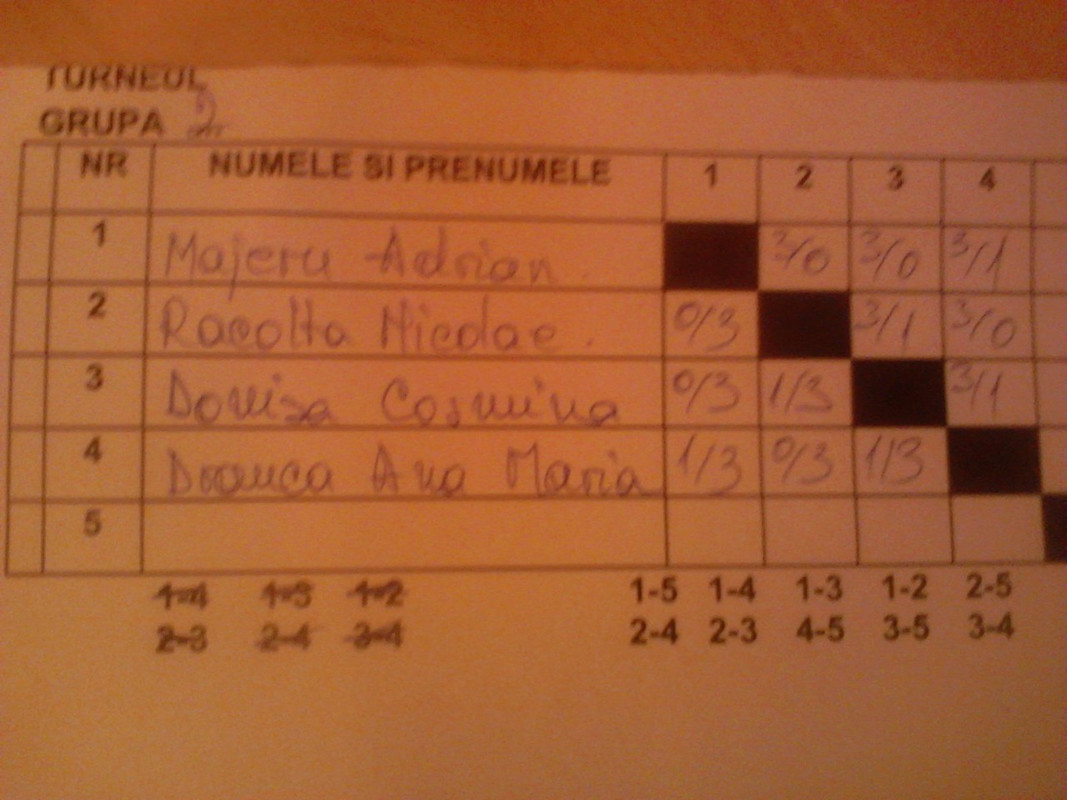 TURNEUL
GRUPA
NR NUMELE SI PRENUMELE 1 2 3 4
1 Majeru Adrian 3/0 3/0 3/1
2 Racolta Nicolae 0/3 3/1 3/0
3 Cosmina 0/3 1/3 3/1
4 Ana Maria 1/3 0/3 1/3
5
1-4 1-3 1-2 1-5 1-4 1-3 1-2 2-5
2-3 2-4 3-4 2-4 2-3 4-5 3-5 3-4